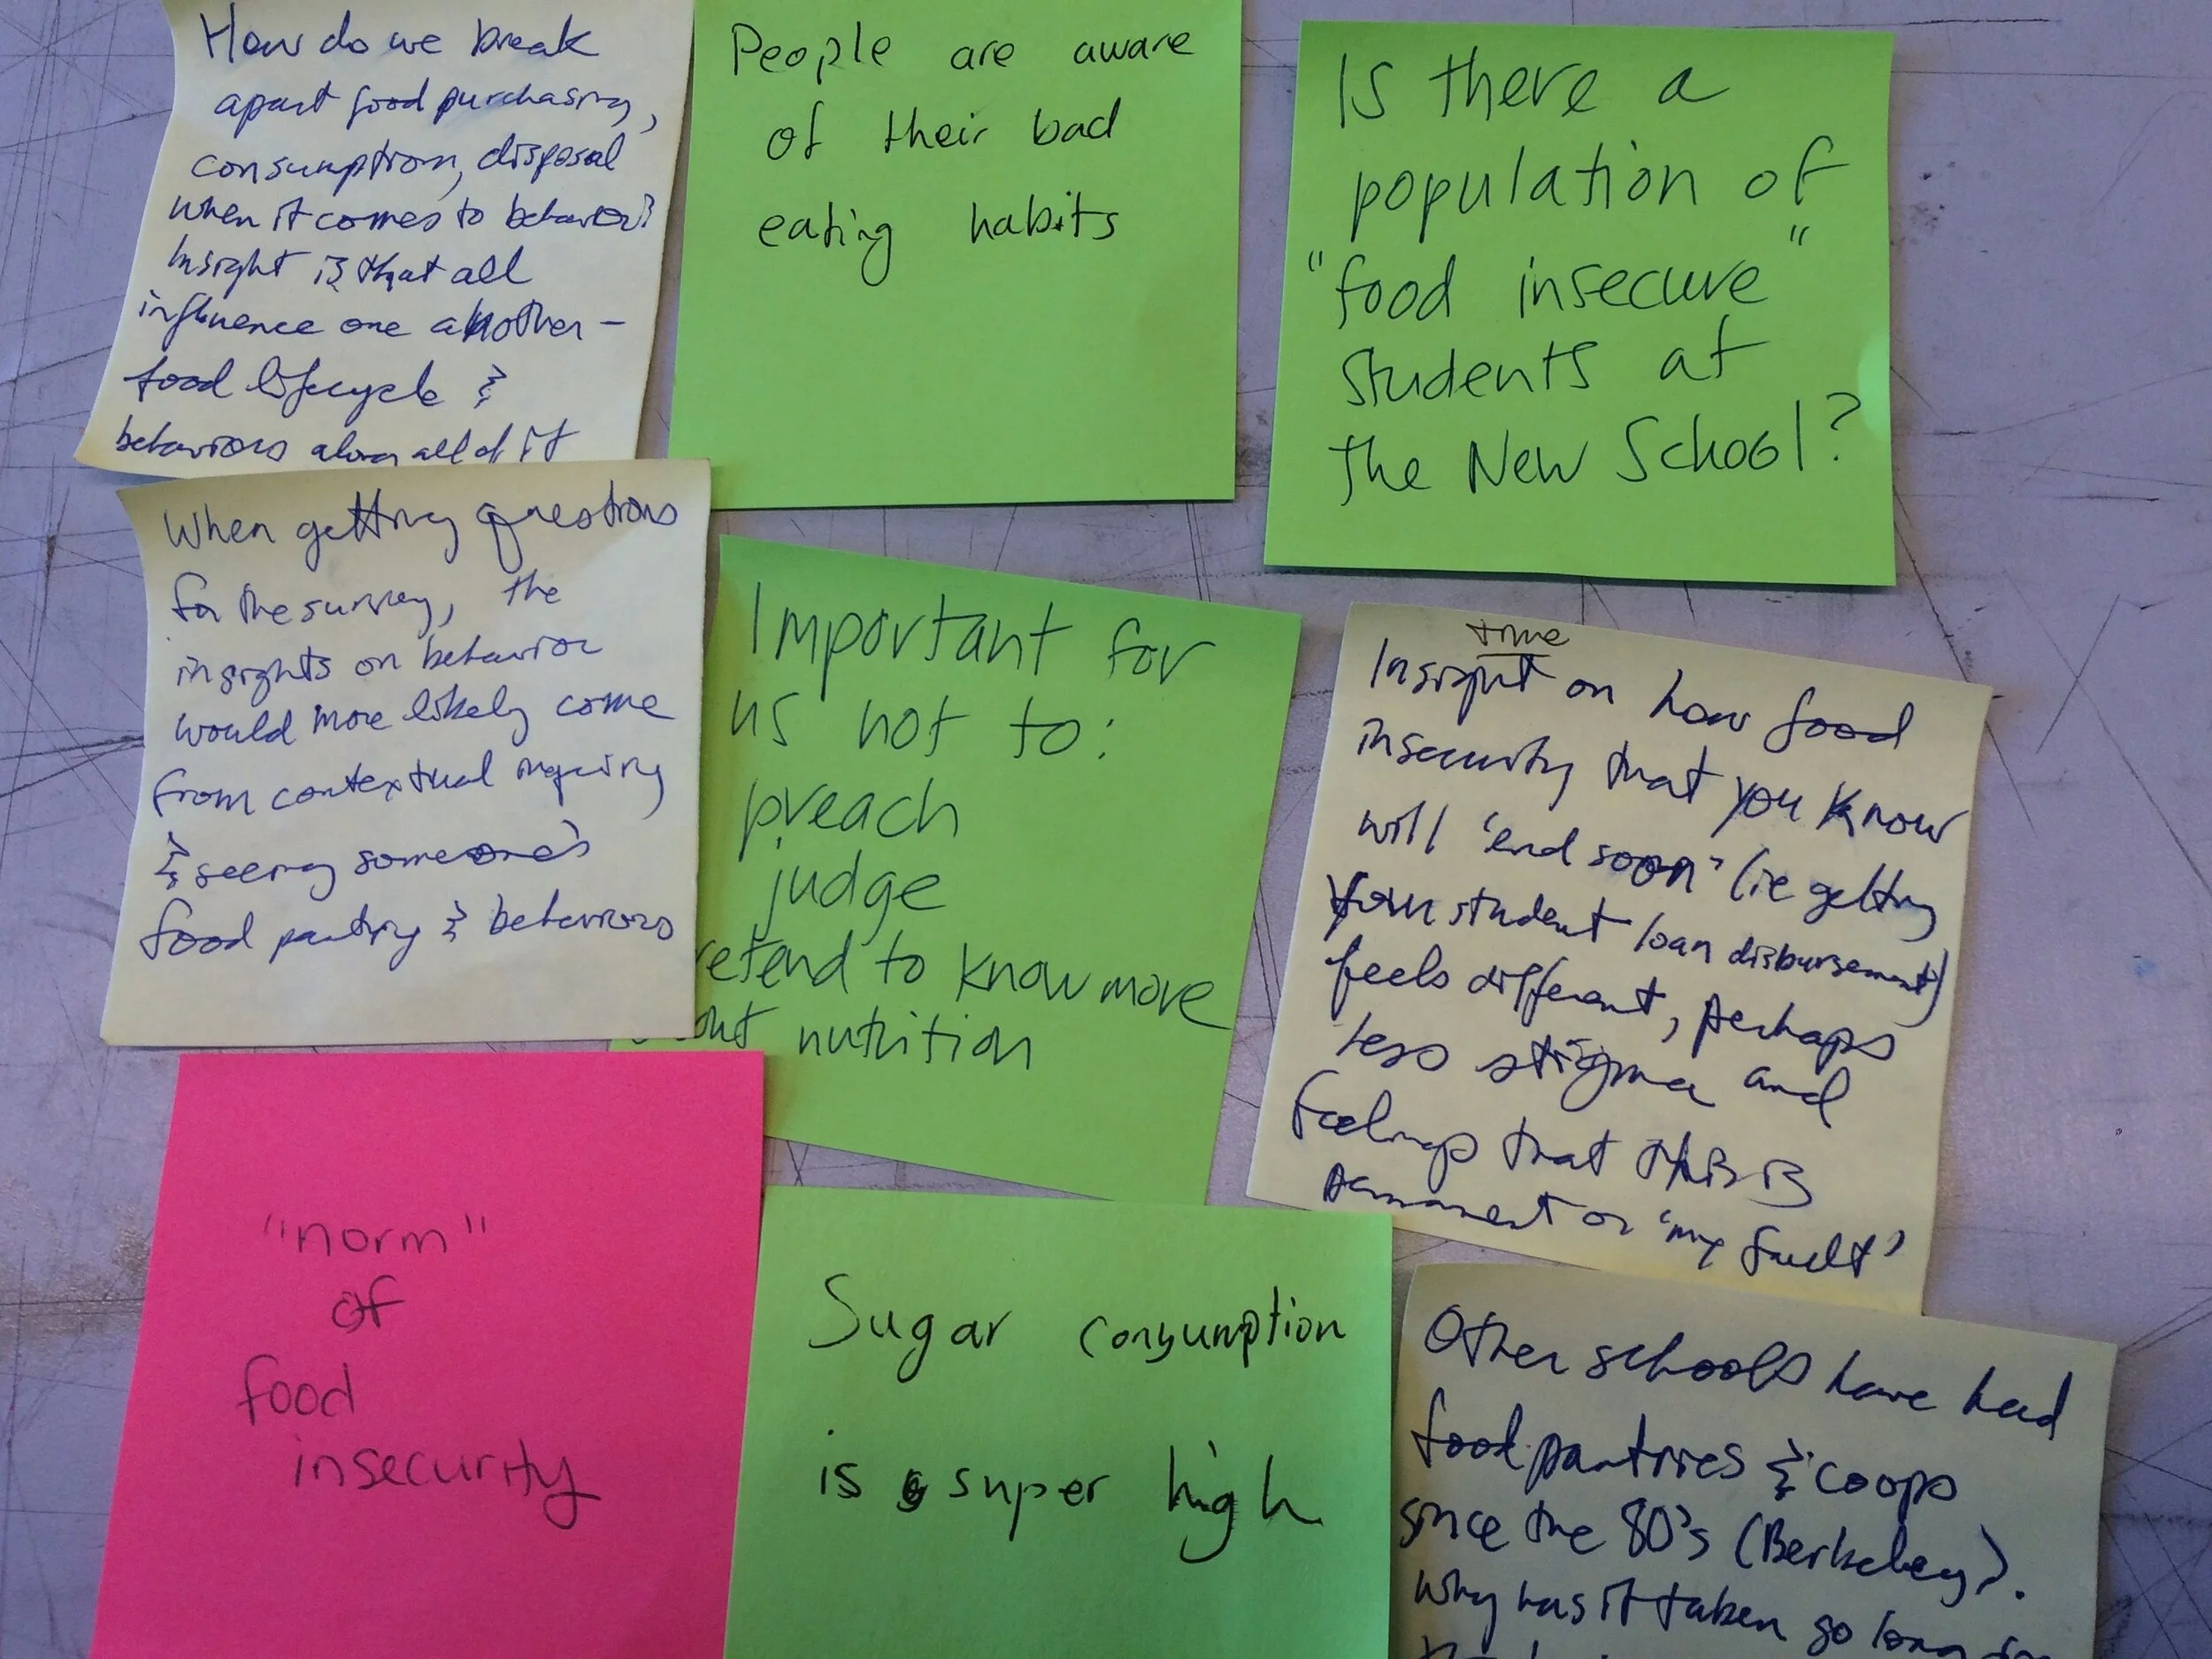 How do we break
apart food purchasing,
consumption, disposal
when it comes to behavior?
Insight is that all
influence one another -
food lifecycle &
behaviors along all of it
People are aware
of their bad
eating habits
Is there a
population of
"food insecure"
students at
the New School?
When getting questions
for the survey, the
insights on behavior
would more likely come
from contextual inquiry
& seeing someone's
food pantry & behaviors
Important for
us not to:
preach
judge
retend to know more
out nutrition
time
Insight on how food
insecurity that you know
will 'end soon' (ie getting
your student loan disbursement)
feels different, perhaps
less stigma and
feelings that this is
permanent or 'my fault'
"norm"
of
food
insecurity
Sugar consumption
is super high
Other schools have had
food pantries & coops
since the 80's (Berkeley).
Why has it taken so long